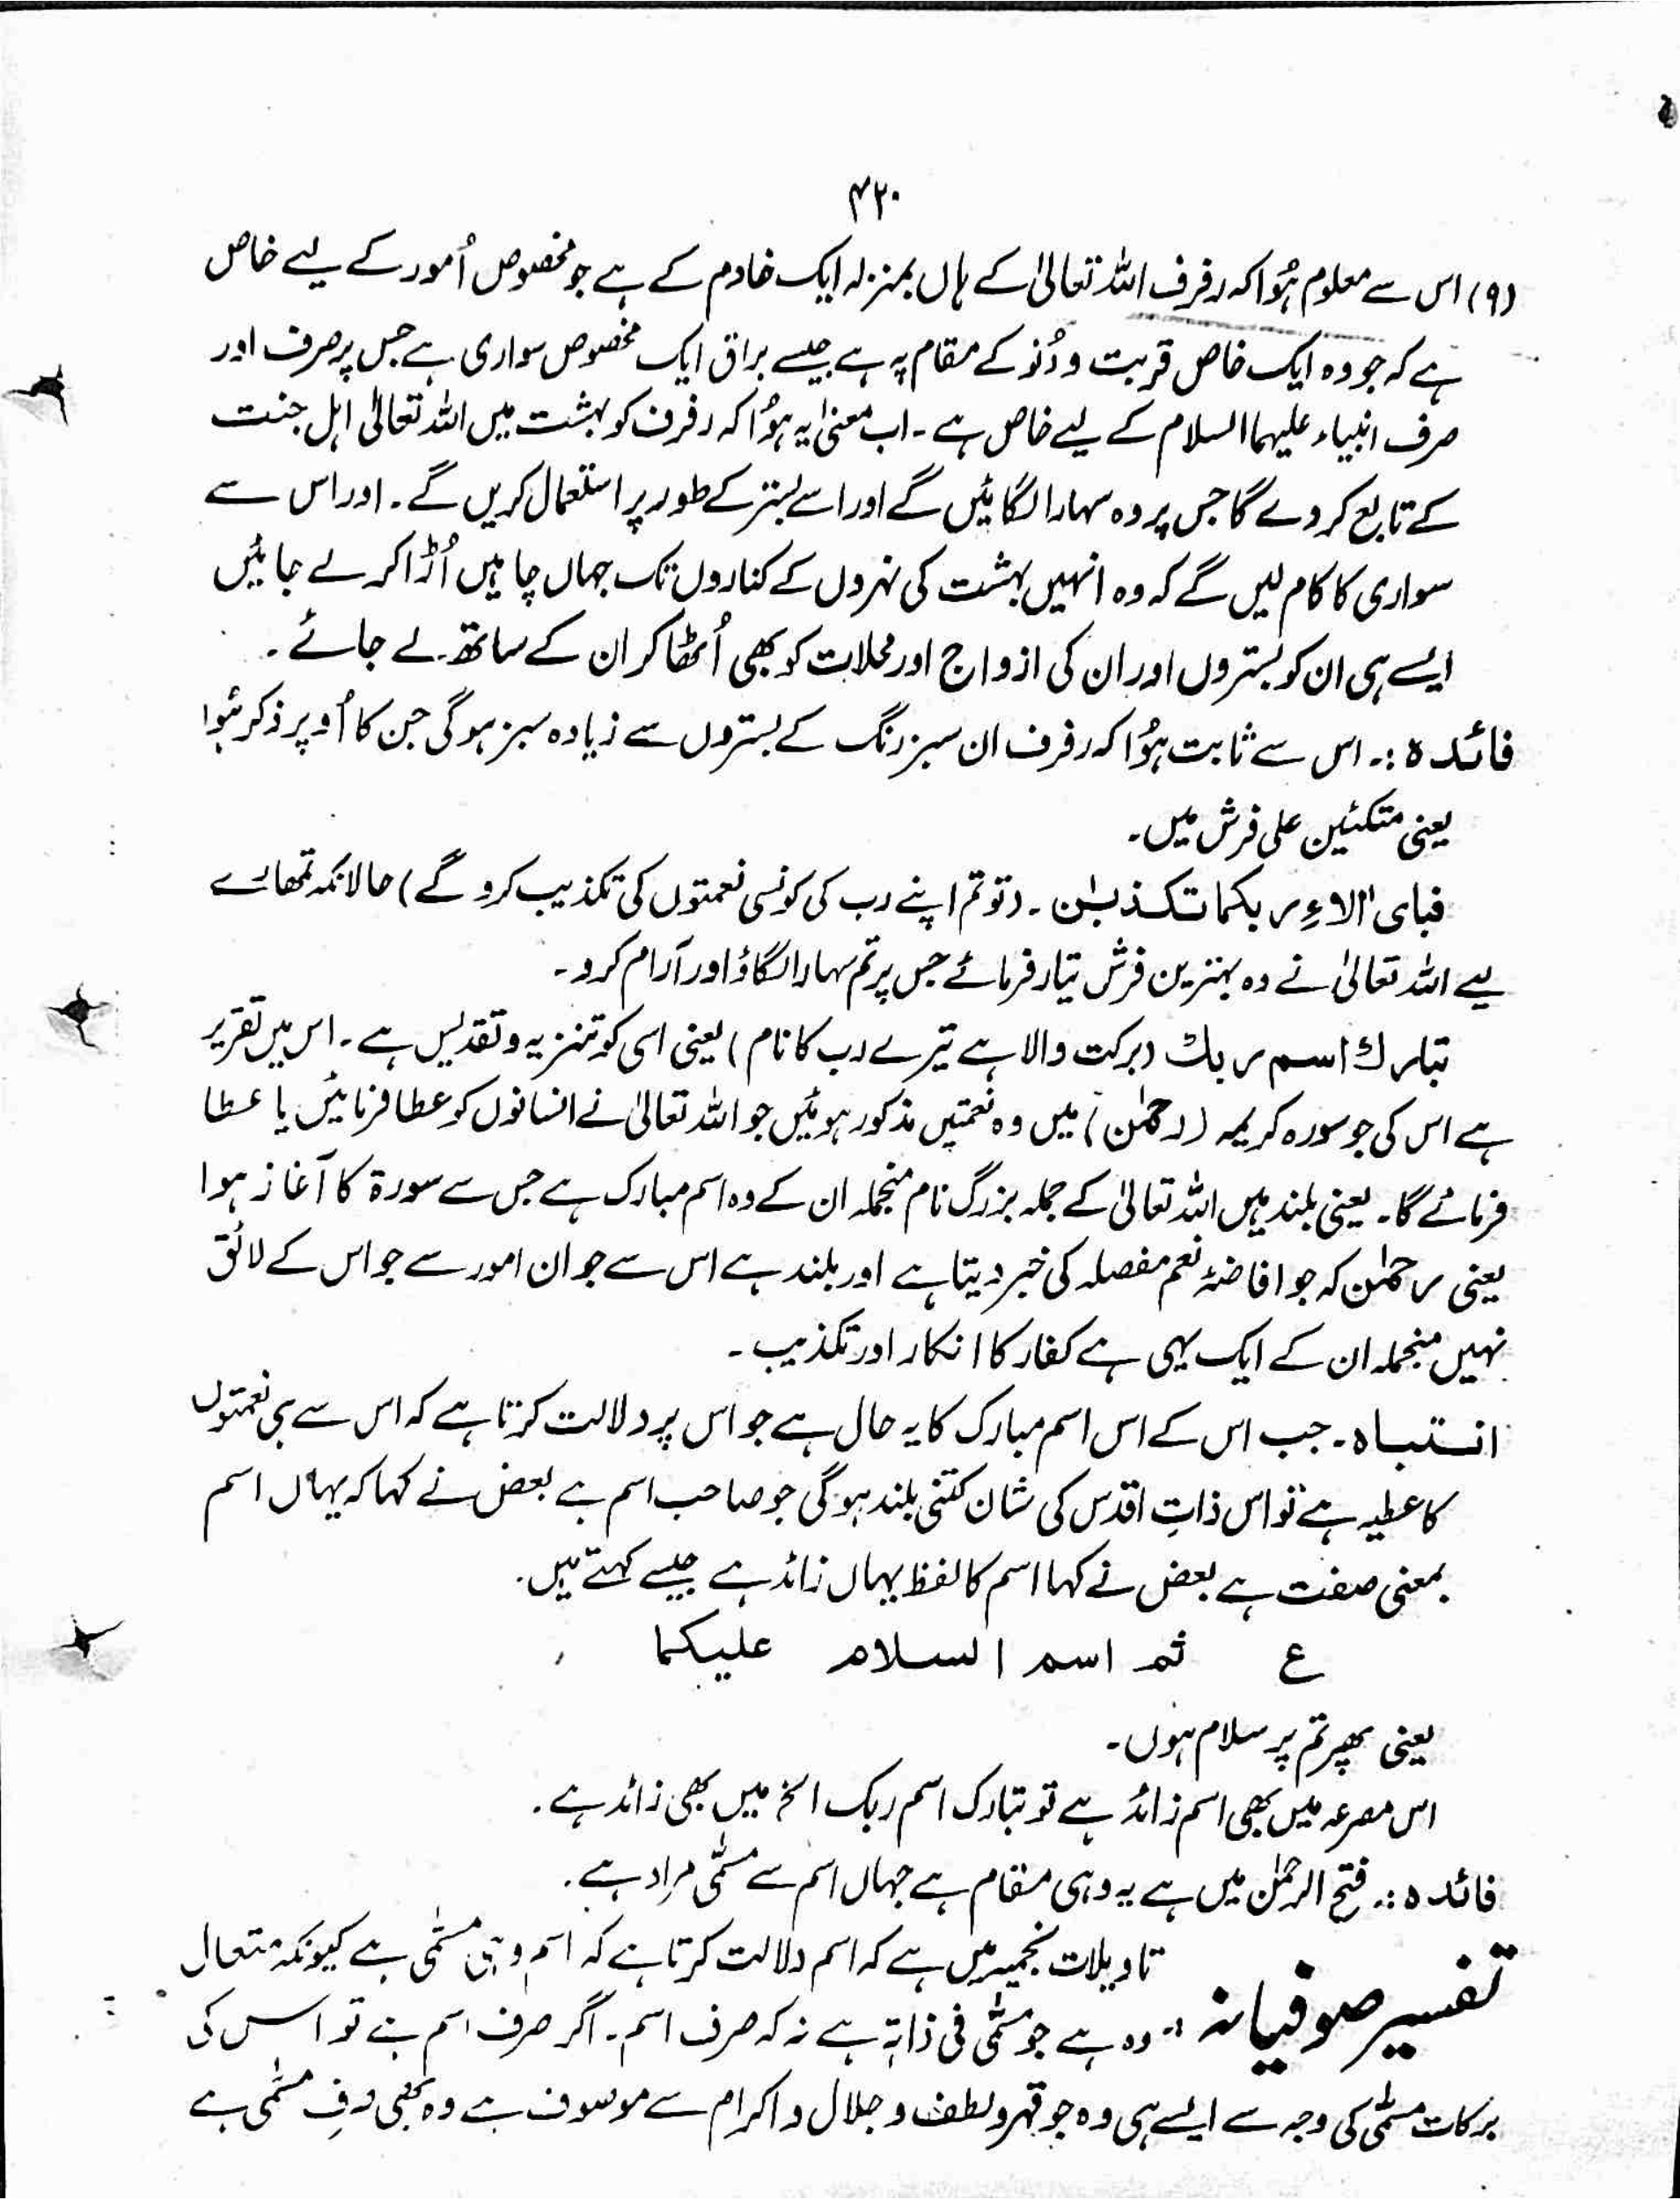 ۴۲۰
(۹) اس سے معلوم ہُوا کہ رفرف اللہ تعالیٰ کے ہاں بمنزلہ ایک خادم کے ہے جو مخصوص اُمور کے لیے خاص
ہے کہ جو وہ ایک خاص قربت و دُنو کے مقام پہ ہے جیسے براق ایک مخصوص سواری ہے جس پر صرف اور
صرف انبیاء علیہما السلام کے لیے خاص ہے ۔ اب معنیٰ یہ ہُوا کہ رفرف کو بہشت میں اللہ تعالیٰ اہل جنت
کے تابع کر دے گا جس پر وہ سہارا لگائیں گے اور اسے بستر کے طور پر استعمال کریں گے ۔ اور اس سے
سواری کا کام لیں گے کہ وہ انہیں بہشت کی نہروں کے کناروں تک جہاں چاہیں اُڑا کر لے جائیں
ایسے ہی ان کو بستروں اور ان کی ازواج اور محلات کو بھی اُٹھا کر ان کے ساتھ لے جائے ۔
فائدہ :۔ اس سے ثابت ہُوا کہ رفرف ان سبز رنگ کے بستروں سے زیادہ سبز ہوگی جن کا اُوپر ذکر ہُوا
یعنی متکئین علی فرش میں۔
فبای اٰلاءِ ربکما تکذبٰن ۔ (تو تم اپنے رب کی کونسی نعمتوں کی تکذیب کرو گے) حالانکہ تمھارے
لیے اللہ تعالیٰ نے وہ بہترین فرش تیار فرمائے جس پر تم سہارا لگاؤ اور آرام کرو ۔
تبارك اسم ربك (برکت والا ہے تیرے رب کا نام) یعنی اسی کو تنزیہ و تقدیس ہے ۔ اس میں تقریر
ہے اس کی جو سورہ کریمہ (رحمٰن) میں وہ نعمتیں مذکور ہوئیں جو اللہ تعالیٰ نے انسانوں کو عطا فرمائیں یا عطا
فرمائے گا۔ یعنی بلند ہیں اللہ تعالیٰ کے جملہ بزرگ نام منجملہ ان کے وہ اسم مبارک ہے جس سے سورۃ کا آغاز ہوا
یعنی رحمٰن کہ جو افاضۂ نعم مفصلہ کی خبر دیتا ہے اور بلند ہے اس سے جو ان امور سے جو اس کے لائق
نہیں منجملہ ان کے ایک یہی ہے کفار کا انکار اور تکذیب ۔
انتباہ ۔ جب اس کے اس اسم مبارک کا یہ حال ہے جو اس پر دلالت کرتا ہے کہ اس سے ہی نعمتوں
کا عطیہ ہے تو اس ذاتِ اقدس کی شان کتنی بلند ہوگی جو صاحب اسم ہے بعض نے کہا کہ یہاں اسم
بمعنی صفت ہے بعض نے کہا اسم کا لفظ یہاں زائد ہے جیسے کہتے ہیں۔
ع ثم اسم السلام علیکما
یعنی پھر تم پر سلام ہوں۔
اس مصرعہ میں بھی اسم زائد ہے تو تبارک اسم ربک الخ میں بھی زائد ہے۔
فائدہ :۔ فتح الرحمٰن میں ہے یہ وہی مقام ہے جہاں اسم سے مسمّٰی مراد ہے۔
تفسیر صوفیانہ :۔ تاویلات نجمیہ میں ہے کہ اسم دلالت کرتا ہے کہ اسم وہی مسمّٰی ہے کیونکہ متعال
وہ ہے جو مسمّٰی فی ذاتہٖ ہے نہ کہ صرف اسم۔ اگر صرف اسم ہے تو اس کی
برکات مسمّٰی کی وجہ سے ایسے ہی وہ جو قہر و لطف و جلال و اکرام سے موصوف ہے وہ بھی مسمّٰی ہے